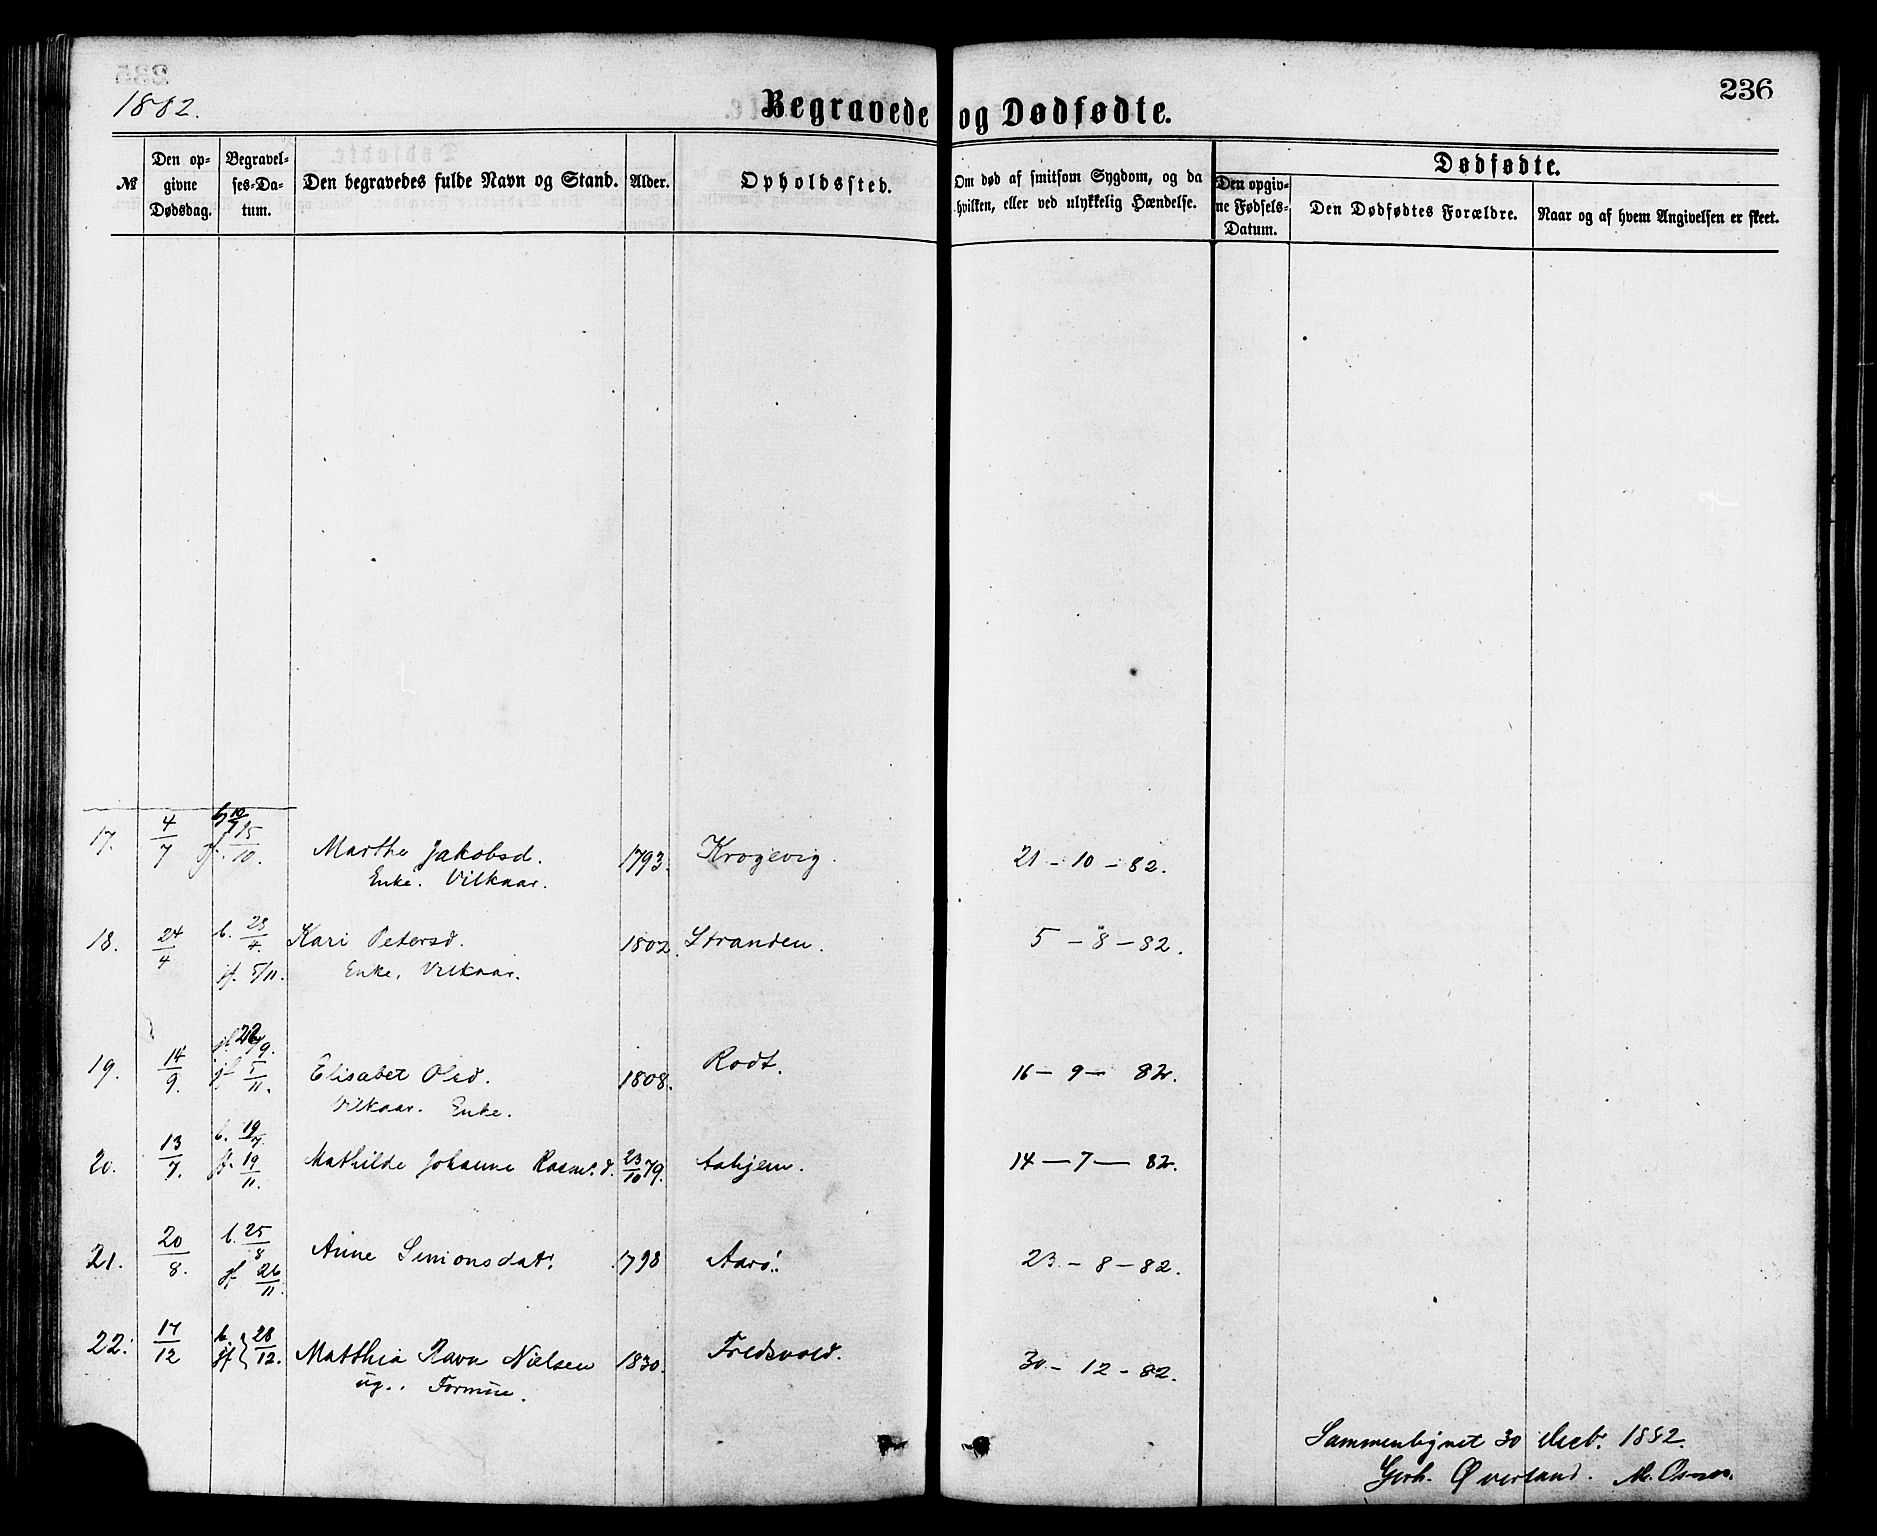 236
1882.
Begravede og Dødfødte.
№
Den opgivne Dødsdag.
Begravelses-Datum.
Den begravedes fulde Navn og Stand.
Alder.
Opholdssted.
Om død af smitsom Sygdom, og da hvilken, eller ved ulykkelig Hændelse.
Dødfødte.
Den opgivne Fødsels-Datum.
Den Dødfødtes Forældre.
Naar og af hvem Angivelsen er skeet.
17. 4/7 b 10/7 jf. 15/10. Marthe Jakobsd. 1793. Krogevig. 21-10-82.
Enke. Vilkaar.
18. 24/4 b. 28/4. Kari Petersd. 1802. Stranden. 5-8-82.
jf. 5/11. Enke. Vilkaar.
19. 14/9. jf 5/11. Elisabet Olsd. 1808. Rødt. 16-9-82.
Vilkaar. Enke.
20. 13/7. b. 19/7. jf. 19/11. Mathilde Johanne Rasm.d. 23/10 79. Aahjem. 14-7-82.
21. 20/8. b. 25/8 jf 26/11. Anne Simonsdat. 1798 Aarø. 23-8-82.
22. 17/12 b. jf } 28/12. Matthia Ravn Nielsen 1830. Fredsvold. 30-12-82.
ug.
Sammenlignet 30 Decb. 1882.
Gerh. Øverland.